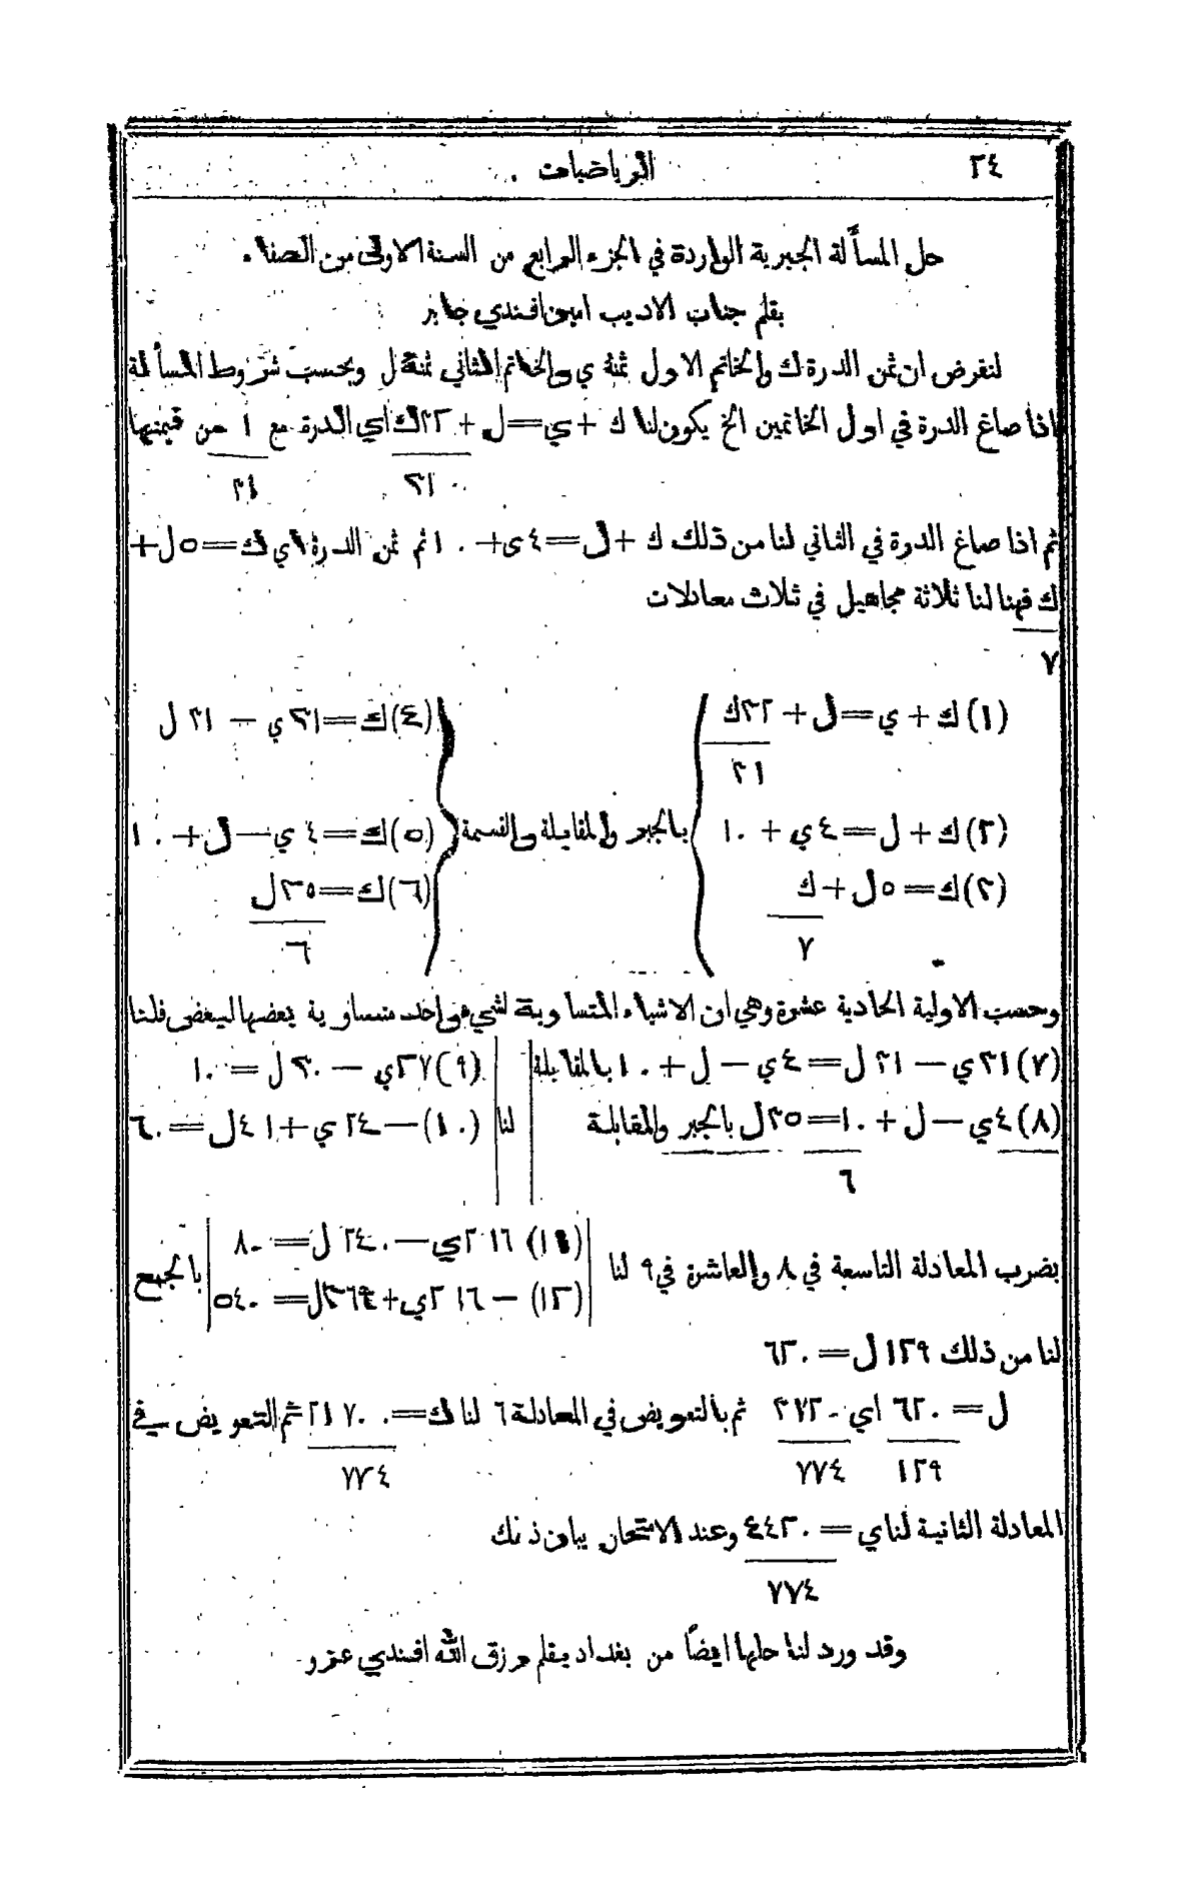 ٢٤
الرياضيات
حل المسألة الجبرية الواردة في الجزء الرابع من السنة الاولى من الصفاء
بقلم جناب الاديب امين افندي جابر
لنفرض ان ثمن الدرة ك والخاتم الاول ثمنهُ ي والخاتم الثاني ثمنهُ ل وبحسب شروط المسألة
اذا صاغ الدرة في اول الخاتمين الخ يكون لنا ك + ي = ل + ٢٢ك اي الدرة مع ١ من قيمتها
٢١ ٢١
ثم اذا صاغ الدرة في الثاني لنا من ذلك ك + ل = ٤ي + ١٠ ثم ثمن الدرة اي ك = ٥ل +
ك فهنا لنا ثلاثة مجاهيل في ثلاث معادلات
٧
(١) ك + ي = ل + ٢٢ك
٢١
(٢) ك + ل = ٤ي + ١٠
(٣) ك = ٥ل + ك
٧
بالجبر والمقابلة والقسمة
(٤) ك = ٢١ي − ٢١ ل
(٥) ك = ٤ ي − ل + ١٠
(٦) ك = ٣٥ل
٦
وحسب الاولية الحادية عشرة وهي ان الاشياء المتساوية لشيء واحد متساوية بعضها لبعض فلنا
(٧) ٢١ي − ٢١ ل = ٤ي − ل + ١٠ بالمقابلة
(٨) ٤ي − ل + ١٠ = ٣٥ل بالجبر والمقابلة
٦
لنا
(٩) ٢٧ي − ٣٠ ل = ١٠
(١٠) − ٢٤ي + ٤١ل = ٦٠
بضرب المعادلة التاسعة في ٨ والعاشرة في ٩ لنا
(١١) ٢١٦ي − ٢٤٠ل = ٨٠
(١٢) − ٢١٦ي + ٣٦٩ل = ٥٤٠
بالجمع
لنا من ذلك ١٢٩ ل = ٦٢٠
ل = ٦٢٠ اي ٣٧٢٠ ثم بالتعويض في المعادلة ٦ لنا ك = ٢١٧٠٠ ثم التعويض في
١٢٩ ٧٧٤ ٧٧٤
المعادلة الثانية لنا ي = ٤٤٣٠ وعند الامتحان يبان ذلك
٧٧٤
وقد ورد لنا حلها ايضاً من بغداد بقلم رزق الله افندي